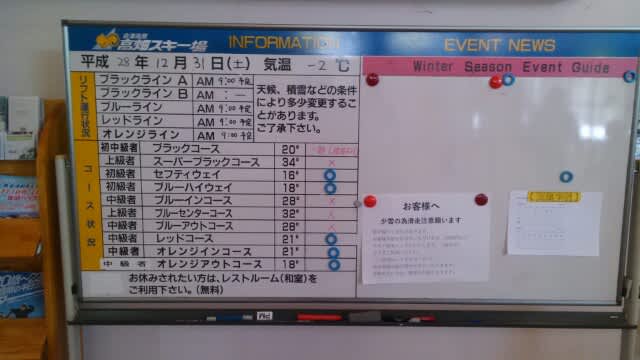 会津高原
高畑スキー場 INFORMATION
平成 28 年 12 月 31 日(土) 気温 -2 ℃
リフト運行状況
ブラックライン A AM 9:00 予定
ブラックライン B AM : —
ブルーライン AM 9:00 予定
レッドライン AM 9:00 予定
オレンジライン AM 9:00 予定
天候、積雪などの条件
により多少変更するこ
とがあります。
ご了承下さい。
コース状況
初中級者 ブラックコース 20°
上級者 スーパーブラックコース 34° ×
初級者 セフティウェイ 16° ◎
初級者 ブルーハイウェイ 18° ◎
中級者 ブルーインコース 28° ×
上級者 ブルーセンターコース 32° ×
中級者 ブルーアウトコース 28° ×
中級者 レッドコース 21° ◎
中級者 オレンジインコース 21° ◎
中級者 オレンジアウトコース 18° ◎
お休みされたい方は、レストルーム(和室)を
ご利用下さい。(無料)
EVENT NEWS
Winter Season Event Guide
お客様へ
少雪の為滑走注意願います